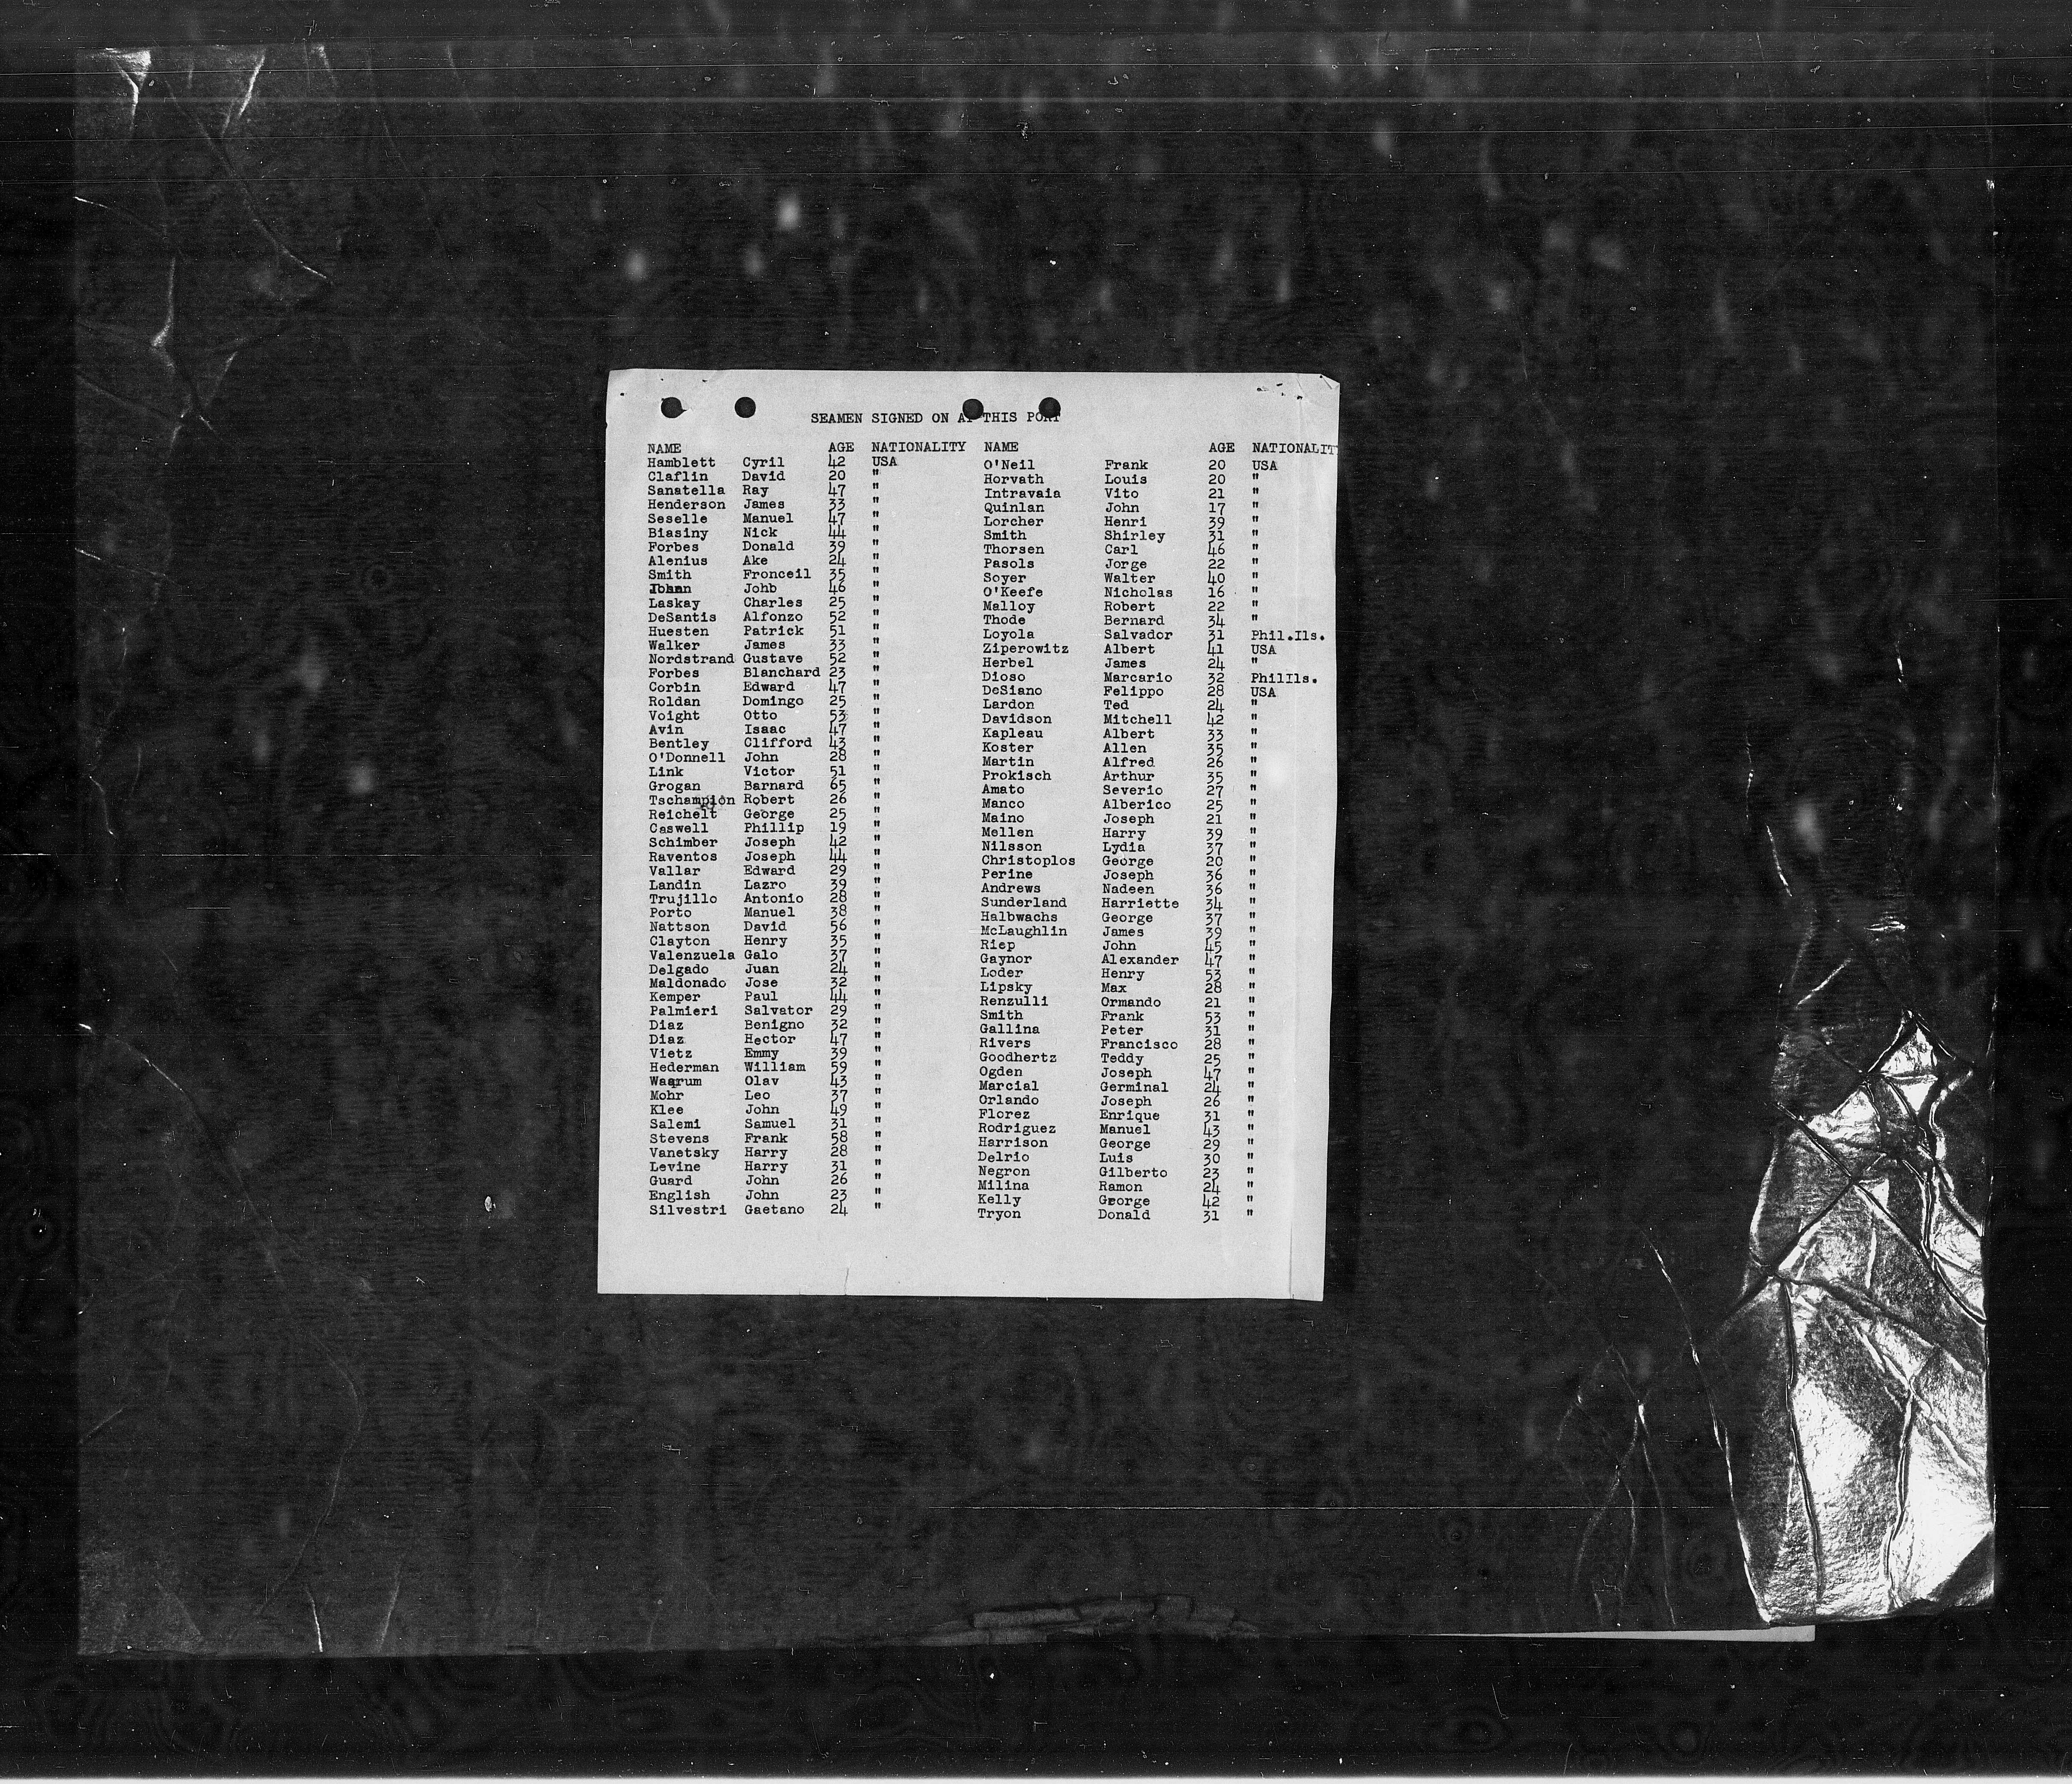 SEAMEN SIGNED ON AT THIS PORT
NAME AGE NATIONALITY
Hamblett Cyril 42 USA
Claflin David 20 "
Sanatella Ray 47 "
Henderson James 33 "
Seselle Manuel 47 "
Biasiny Nick 44 "
Forbes Donald 39 "
Alenius Ake 24 "
Smith Fronceil 35 "
Johb 46 "
Laskay Charles 25 "
DeSantis Alfonzo 52 "
Huesten Patrick 51 "
Walker James 33 "
Nordstrand Gustave 52 "
Forbes Blanchard 23 "
Corbin Edward 47 "
Roldan Domingo 25 "
Voight Otto 53 "
Avin Isaac 47 "
Bentley Clifford 43 "
O'Donnell John 28 "
Link Victor 51 "
Grogan Barnard 65 "
Tschampion Robert 26 "
Reichelt George 25 "
Caswell Phillip 19 "
Schimber Joseph 42 "
Raventos Joseph 44 "
Vallar Edward 29 "
Landin Lazro 39 "
Trujillo Antonio 28 "
Porto Manuel 38 "
Nattson David 56 "
Clayton Henry 35 "
Valenzuela Galo 37 "
Delgado Juan 24 "
Maldonado Jose 32 "
Kemper Paul 44 "
Palmieri Salvator 29 "
Diaz Benigno 32 "
Diaz Hector 47 "
Vietz Emmy 39 "
Hederman William 59 "
Waarum Olav 43 "
Mohr Leo 37 "
Klee John 49 "
Salemi Samuel 31 "
Stevens Frank 58 "
Vanetsky Harry 28 "
Levine Harry 31 "
Guard John 26 "
English John 23 "
Silvestri Gaetano 24 "
NAME AGE NATIONALIT
O'Neil Frank 20 USA
Horvath Louis 20 "
Intravaia Vito 21 "
Quinlan John 17 "
Lorcher Henri 39 "
Smith Shirley 31 "
Thorsen Carl 46 "
Pasols Jorge 22 "
Soyer Walter 40 "
O'Keefe Nicholas 16 "
Malloy Robert 22 "
Thode Bernard 34 "
Loyola Salvador 31 Phil.Ils.
Ziperowitz Albert 41 USA
Herbel James 24 "
Dioso Marcario 32 PhilIls.
DeSiano Felippo 28 USA
Lardon Ted 24 "
Davidson Mitchell 42 "
Kapleau Albert 33 "
Koster Allen 35 "
Martin Alfred 26 "
Prokisch Arthur 35 "
Amato Severio 27 "
Manco Alberico 25 "
Maino Joseph 21 "
Mellen Harry 39 "
Nilsson Lydia 37 "
Christoplos George 20 "
Perine Joseph 36 "
Andrews Nadeen 36 "
Sunderland Harriette 34 "
Halbwachs George 37 "
McLaughlin James 39 "
Riep John 45 "
Gaynor Alexander 47 "
Loder Henry 53 "
Lipsky Max 28 "
Renzulli Ormando 21 "
Smith Frank 53 "
Gallina Peter 31 "
Rivers Francisco 28 "
Goodhertz Teddy 25 "
Ogden Joseph 47 "
Marcial Germinal 24 "
Orlando Joseph 26 "
Florez Enrique 31 "
Rodriguez Manuel 43 "
Harrison George 29 "
Delrio Luis 30 "
Negron Gilberto 23 "
Milina Ramon 24 "
Kelly George 42 "
Tryon Donald 31 "